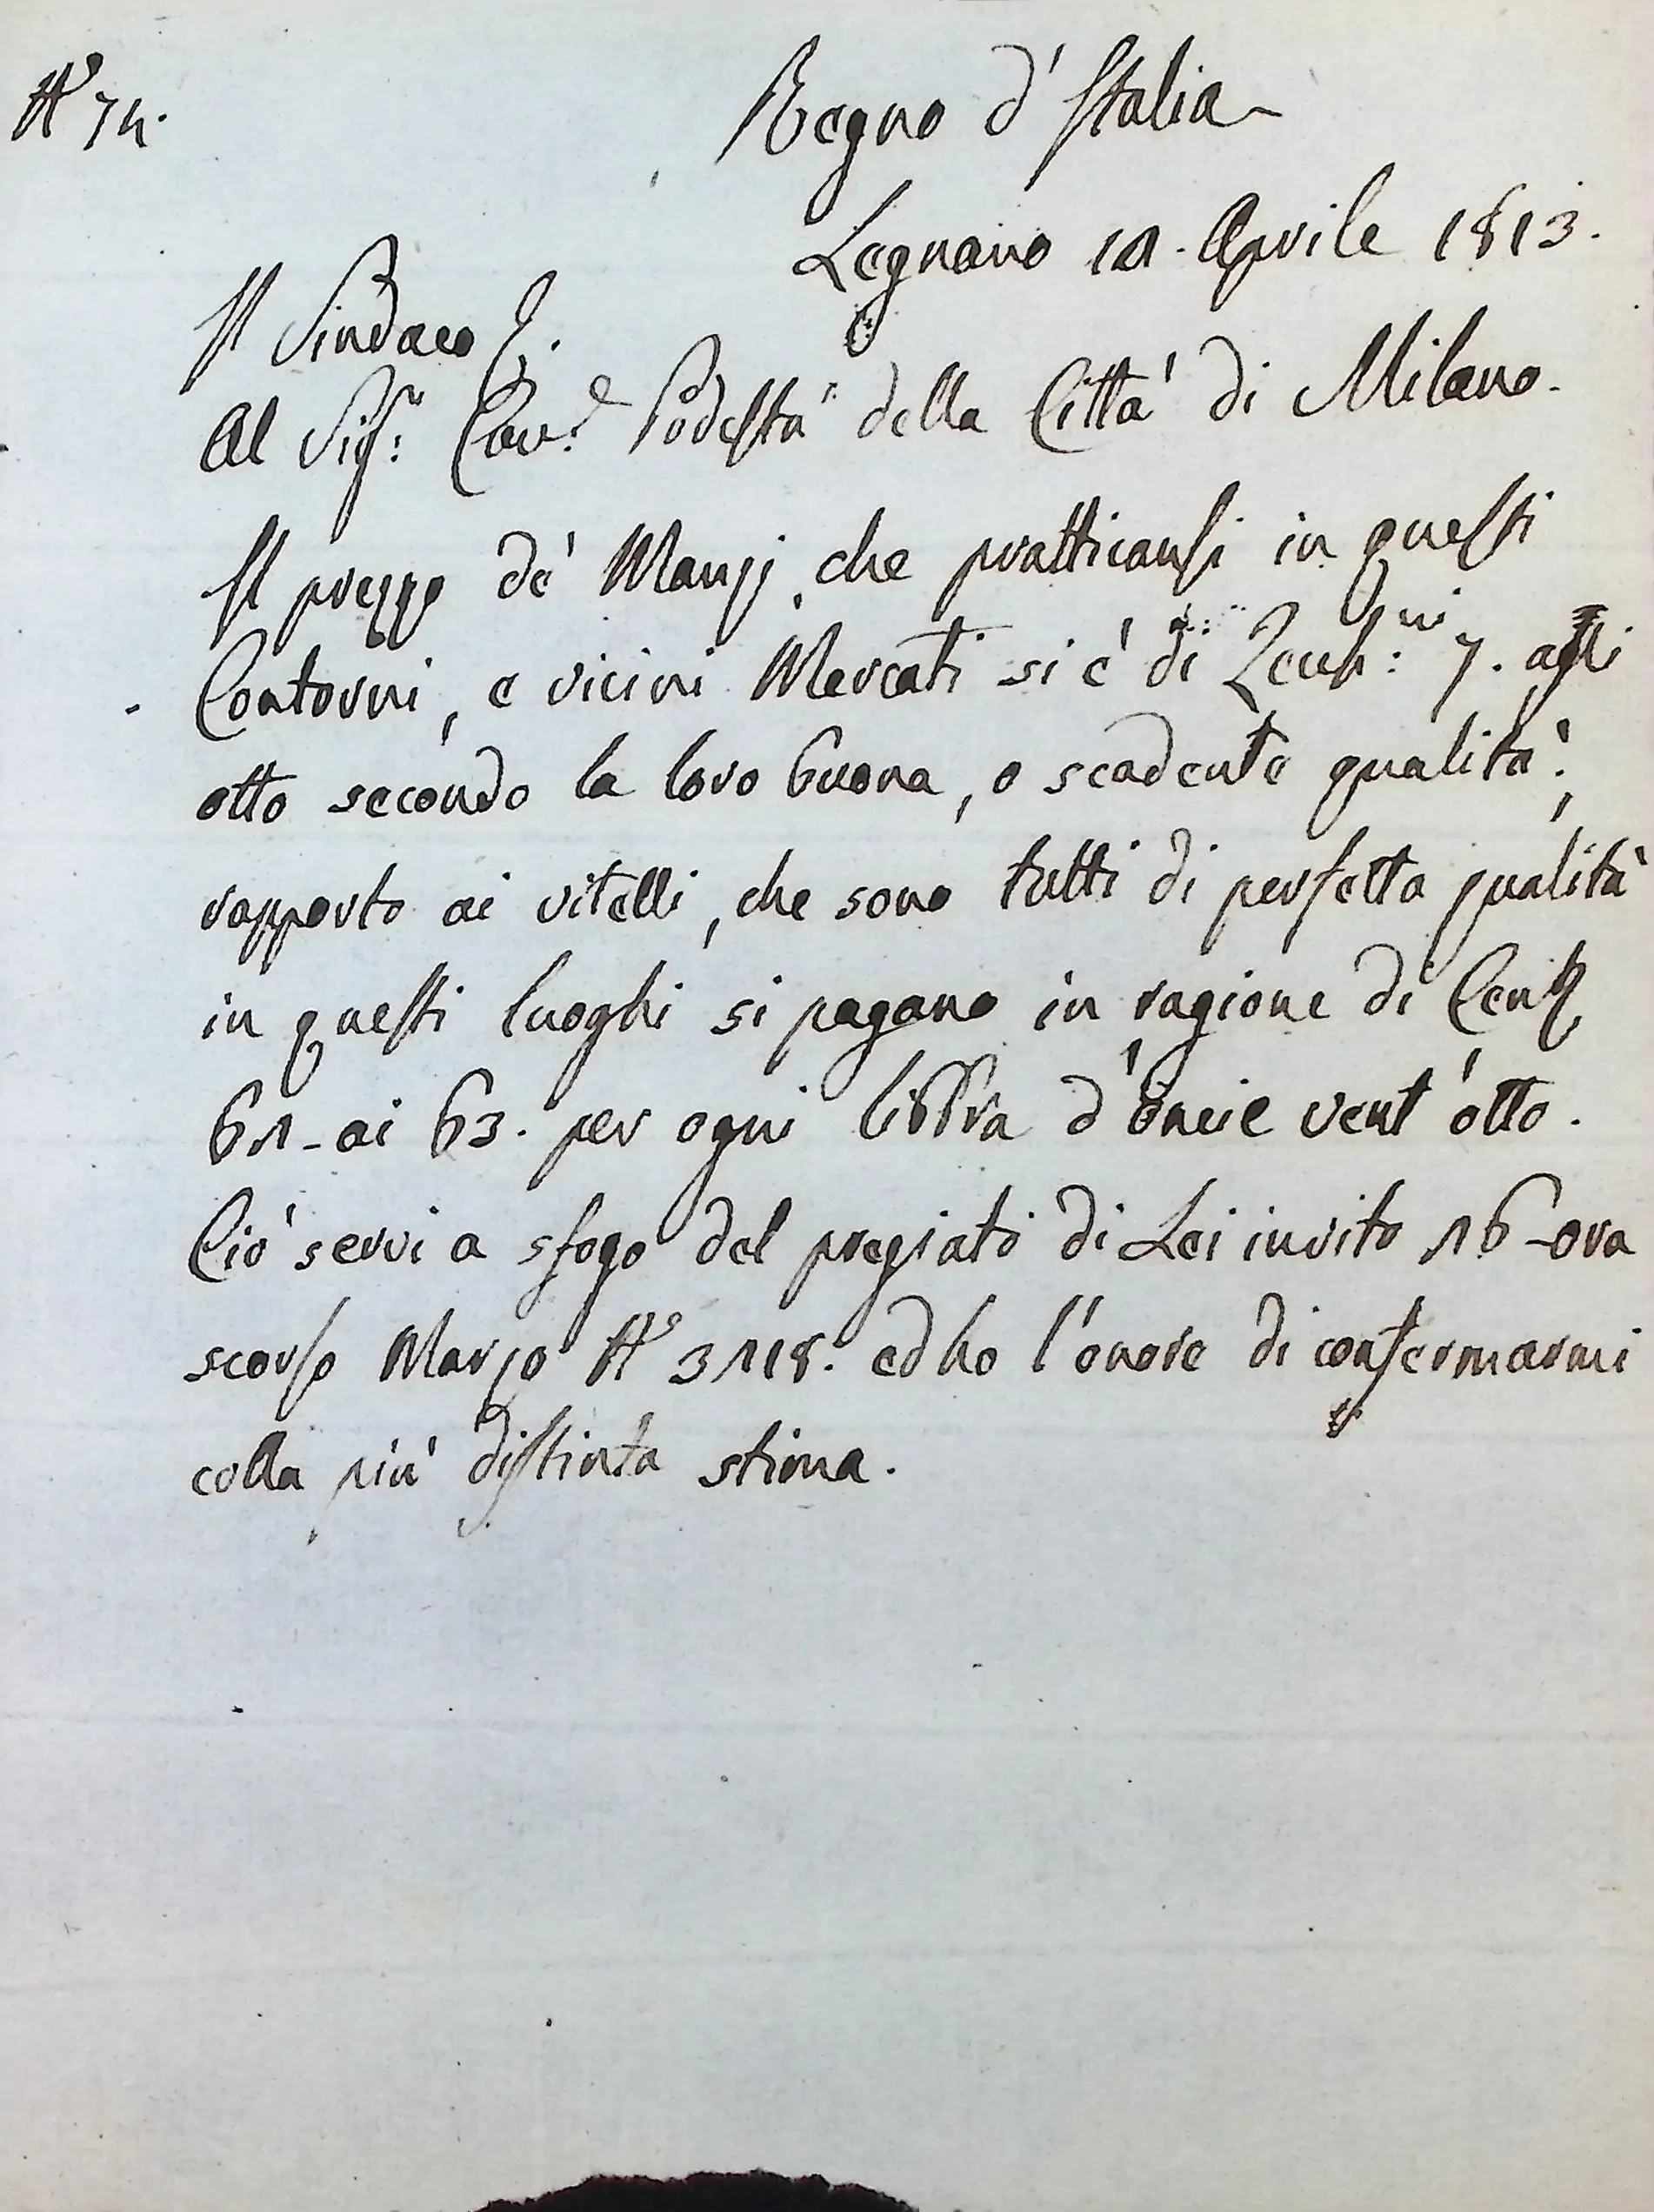 N° 74.
Regno d'Italia
Legnano 12. Aprile 1813.
Il Sindaco
Al Sig.r Cav.e Podestà della Città di Milano.
Il prezzo de' Manzi, che pratticansi in questi
Contorni, e vicini Mercati si è di Zecch:ni 7. agli
otto secondo la loro buona, o scadente qualità;
rapporto ai vitelli, che sono tutti di perfetta qualità
in questi luoghi si pagano in ragione di Cent.
61 - ai 63. per ogni libbra d'oncie vent'otto.
Ciò servi a sfogo del pregiato di Lei invito 16 - ora
scorso Marzo N° 3118. ed ho l'onore di confermarmi
colla più distinta stima.